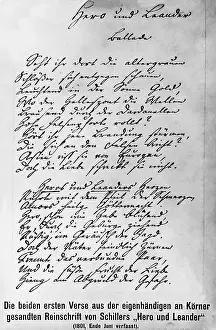 Hero und Leander
Ballade
Seht ihr dort die altergrauen
Schlößer sich entgegen schauen,
Leuchtend in der Sonne Gold,
Wo der Hellespont die Wellen
Brausend durch der Dardanellen
Hohe Felsenpforte rollt?
Hört ihr jene Brandung stürmen,
Die sich an den Felsen bricht?
Asien riß sie von Europen,
Doch die Liebe schreckt sie nicht.
Heros und Leanders Herzen
Rührte mit dem Pfeil der Schmerzen
Amors Göttermacht.
Hero, schön wie Hebe blühend,
Er durch die Gebirge ziehend
Rüstig im Geräusch der Jagd.
Doch der Väter feindlich Zürnen
Trennte das verbundne Paar,
Und die süße Frucht der Liebe
Hing am Abgrund der Gefahr.
Die beiden ersten Verse aus der eigenhändigen an Körner
gesandten Reinschrift von Schillers „Hero und Leander“
(1801, Ende Juni verfasst).